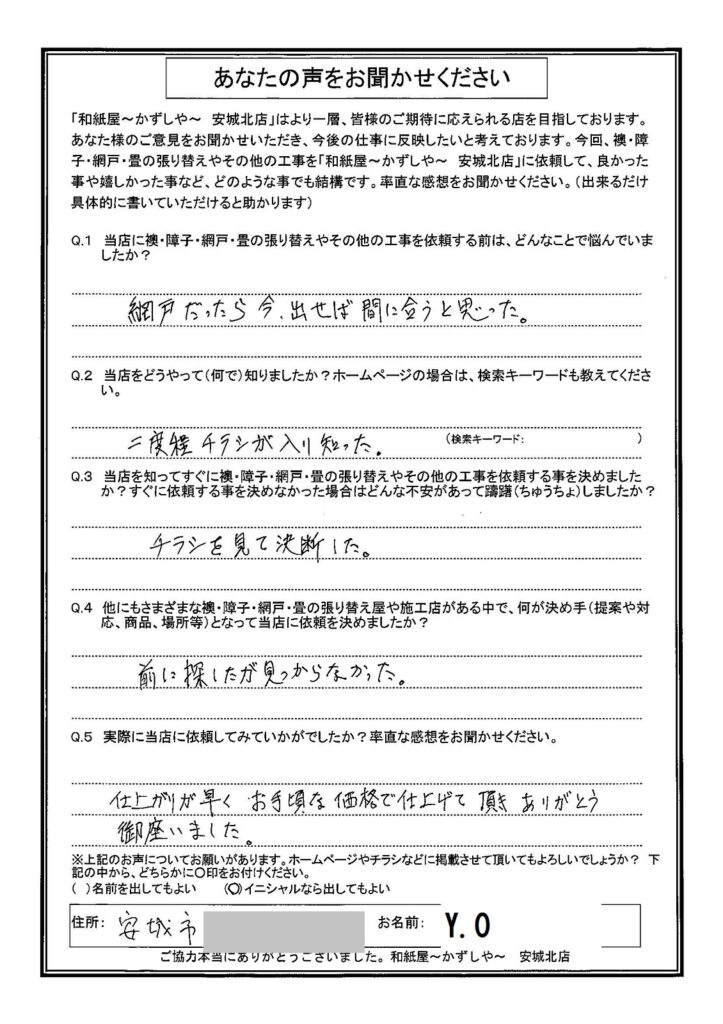 あなたの声をお聞かせください
「和紙屋～かずしや～　安城北店」はより一層、皆様のご期待に応えられる店を目指しております。
あなた様のご意見をお聞かせいただき、今後の仕事に反映したいと考えております。今回、襖・障
子・網戸・畳の張り替えやその他の工事を「和紙屋～かずしや～　安城北店」に依頼して、良かった
事や嬉しかった事など、どのような事でも結構です。率直な感想をお聞かせください。（出来るだけ
具体的に書いていただけると助かります）
Q.1　当店に襖・障子・網戸・畳の張り替えやその他の工事を依頼する前は、どんなことで悩んでいま
したか？
網戸だったら今、出せば間に合うと思った。
Q.2　当店をどうやって（何で）知りましたか？ホームページの場合は、検索キーワードも教えてくださ
い。
二度程チラシが入り知った。　（検索キーワード：　）
Q.3　当店を知ってすぐに襖・障子・網戸・畳の張り替えやその他の工事を依頼する事を決めました
か？すぐに依頼する事を決めなかった場合はどんな不安があって躊躇（ちゅうちょ）しましたか？
チラシを見て決断した。
Q.4　他にもさまざまな襖・障子・網戸・畳の張り替え屋や施工店がある中で、何が決め手（提案や対
応、商品、場所等）となって当店に依頼を決めましたか？
前に探したが見つからなかった。
Q.5　実際に当店に依頼してみていかがでしたか？率直な感想をお聞かせください。
仕上がりが早く お手頃な価格で仕上げて頂き ありがとう
御座いました。
※上記のお声についてお願いがあります。ホームページやチラシなどに掲載させて頂いてもよろしいでしょうか？　下
記の中から、どちらかに○印をお付けください。
（　）名前を出してもよい　（○）イニシャルなら出してもよい
住所：　安城市　お名前：　Y.O
ご協力本当にありがとうございました。和紙屋～かずしや～　安城北店